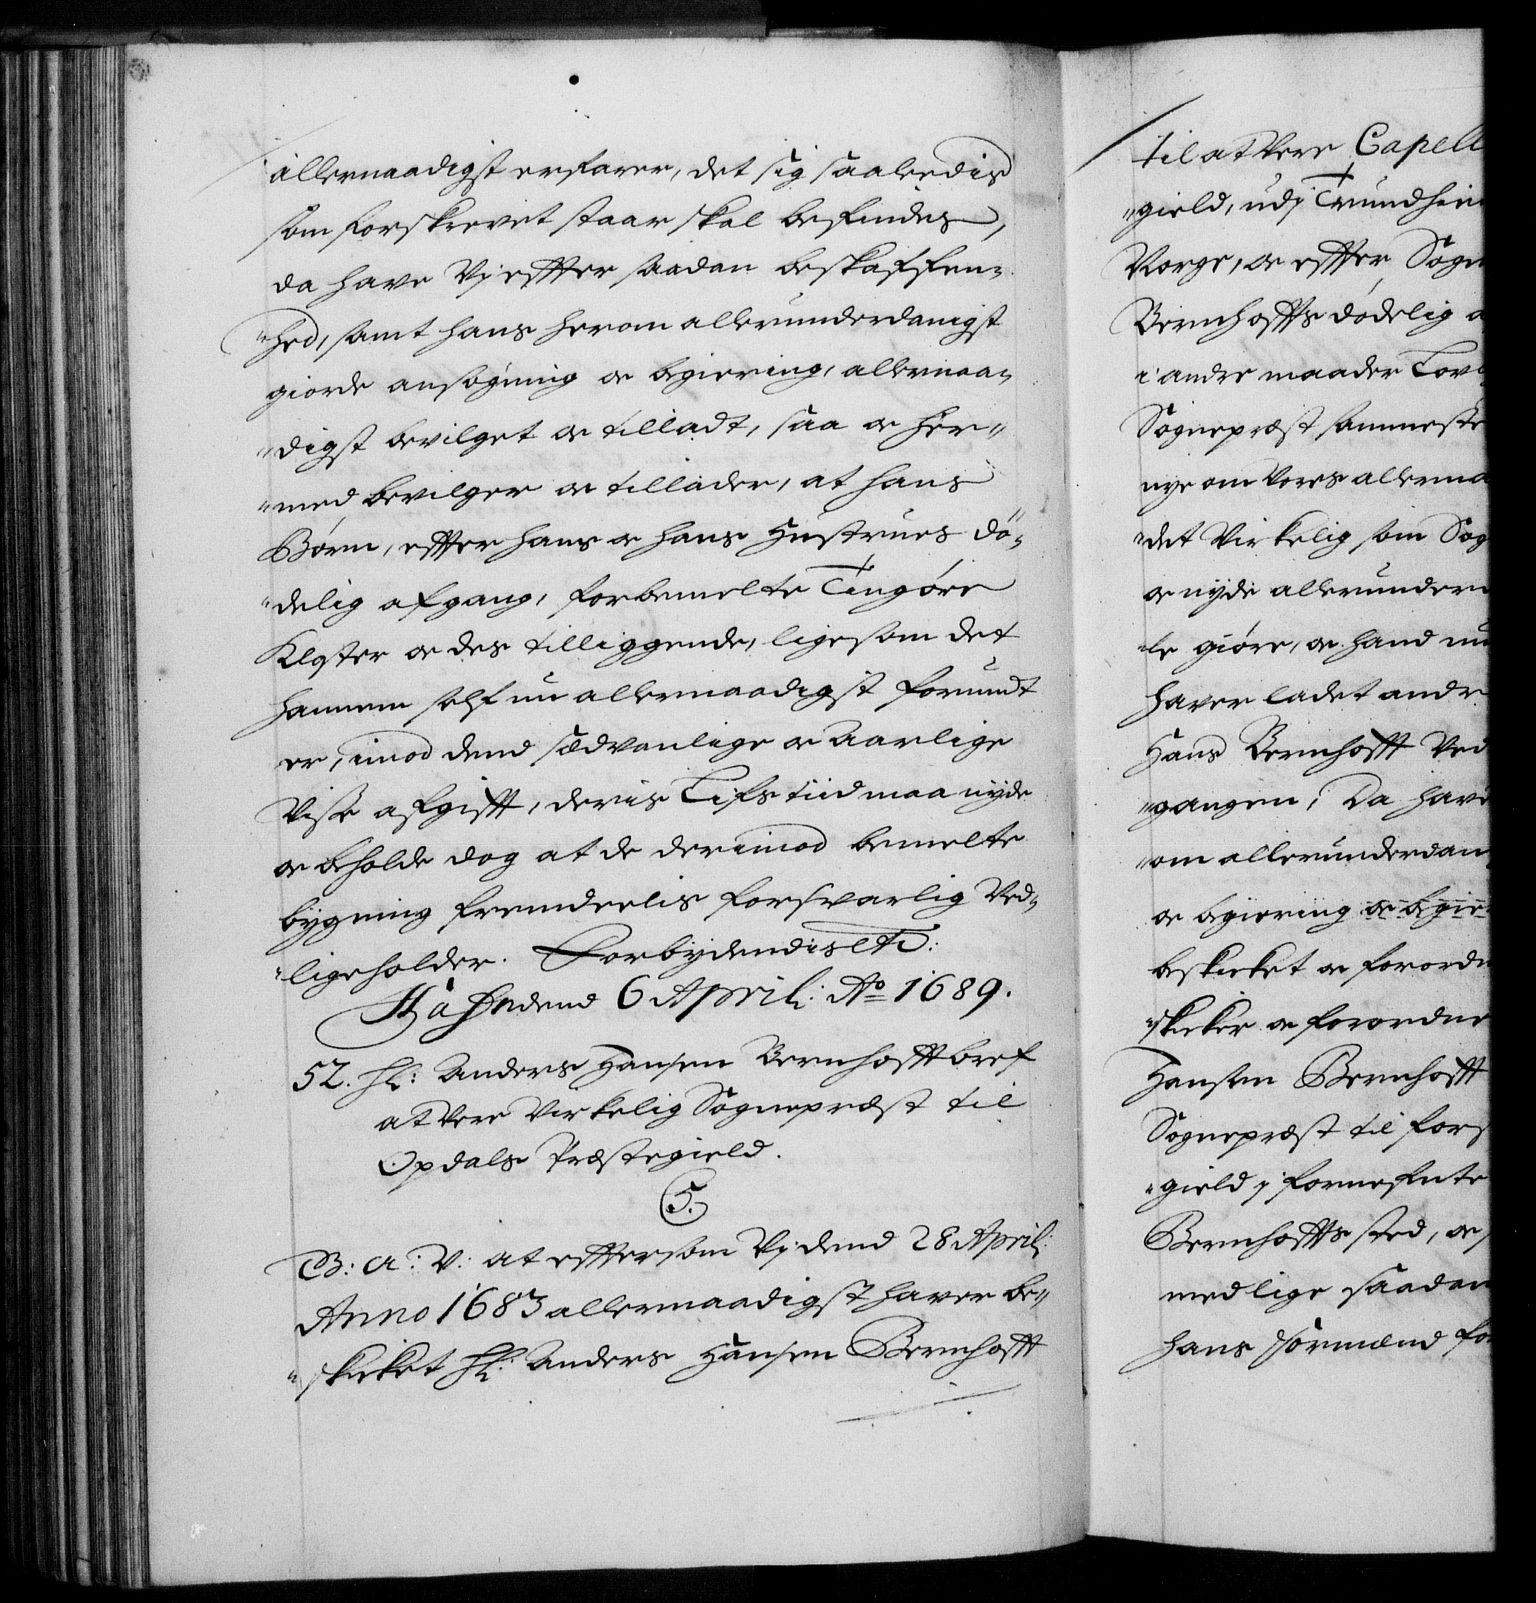 allernaadigst erfarer, det sig saaledis
som forskrevet staar skal befindes,
da have Vj effter saadan beskaffen-
hed, samt hans herom allerunderdanigst
giorde ansøgning oc begiering, allernaa-
digst bevilget oc tilladt, saa oc her-
med bevilger oc tillader, at hans
Børn, effter hans oc hans Hustrues dø-
delig afgang, forbemelte Tingøre
Kloster oc des tilliggende, ligesom det
hannem self nu allernaadigst forundt
er, imod dend sædvanlige oc Aarlige
Visse afgifft, deris Lifs tiid maa nyde
oc beholde dog at de derimod bemelte
bygning fremdeelis forsvarlig Ved-
ligeholder. Forbydendis etc:
Hafn dend 6 April: Ao 1689.
52. Hr: Anders Hansen Bernhofft bref
at Vere Virkelig Sognepræst til
Opdals Præstegield.
5.
G: A: V: at effter som Vj dend 28 April:
Anno 1683 allernaadigst haver be-
skicket Hr: Anders Hansen Bernhofft
til at Vere Capell
gield, udj Trundhei
Norge, oc effter Sogn
Bernhoffts dødelig a
i andre maader Lovl
Sognepræst sammeste
nye om Vores allerna
det Virkelig som Sog
oc nyde allerunder
le giøre, oc hand nu
haver ladet andr
Hans Bernhofft Ved
gangen, Da have
om allerunderdan
oc begiering oc begie
beskicket oc forordn
skicker oc forordne
Hansen Bernhofft
Sognepræst til fors
gield j fornefnte
Bernhoffts sted, oc
med lige saadan
hans formænd for